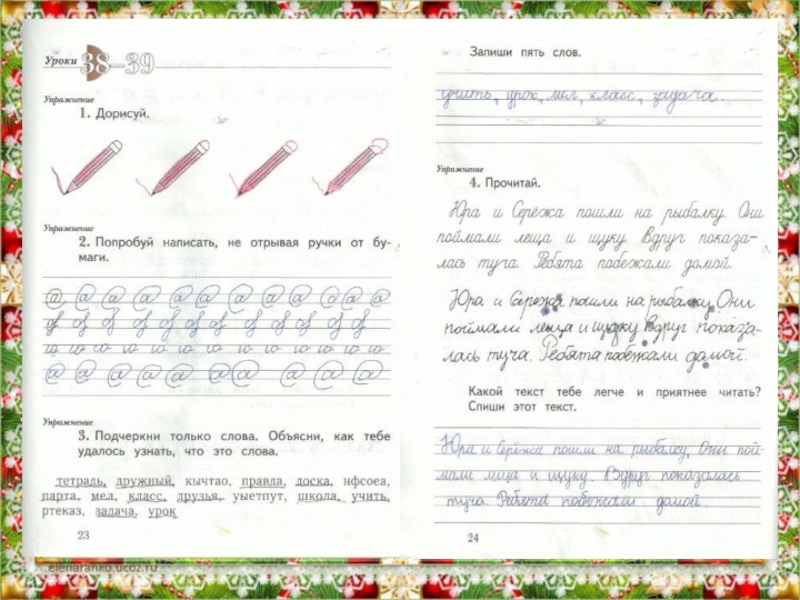 Уроки 38–39
Упражнение
1. Дорисуй.
Упражнение
2. Попробуй написать, не отрывая ручки от бу-
маги.
Упражнение
3. Подчеркни только слова. Объясни, как тебе
удалось узнать, что это слова.
тетрадь, дружный, кычтао, правда, доска, нфсоеа,
парта, мел, класс, друзья, уыетпут, школа, учить,
ртеказ, задача, урок
23
Запиши пять слов.
учить, урок, мел, класс, задача.
Упражнение
4. Прочитай.
Юра и Серёжа пошли на рыбалку. Они
поймали леща и щуку. Вдруг показа-
лась туча. Ребята побежали домой.
Юра и Сережа пошли на рыбалку. Они
поймали леща и щуку. Вдруг показа-
лась туча. Ребята побежали домой.
Какой текст тебе легче и приятнее читать?
Спиши этот текст.
Юра и Серёжа пошли на рыбалку. Они пой-
мали леща и щуку. Вдруг показалась
туча. Ребята побежали домой.
24
elenaranko.ucoz.ru